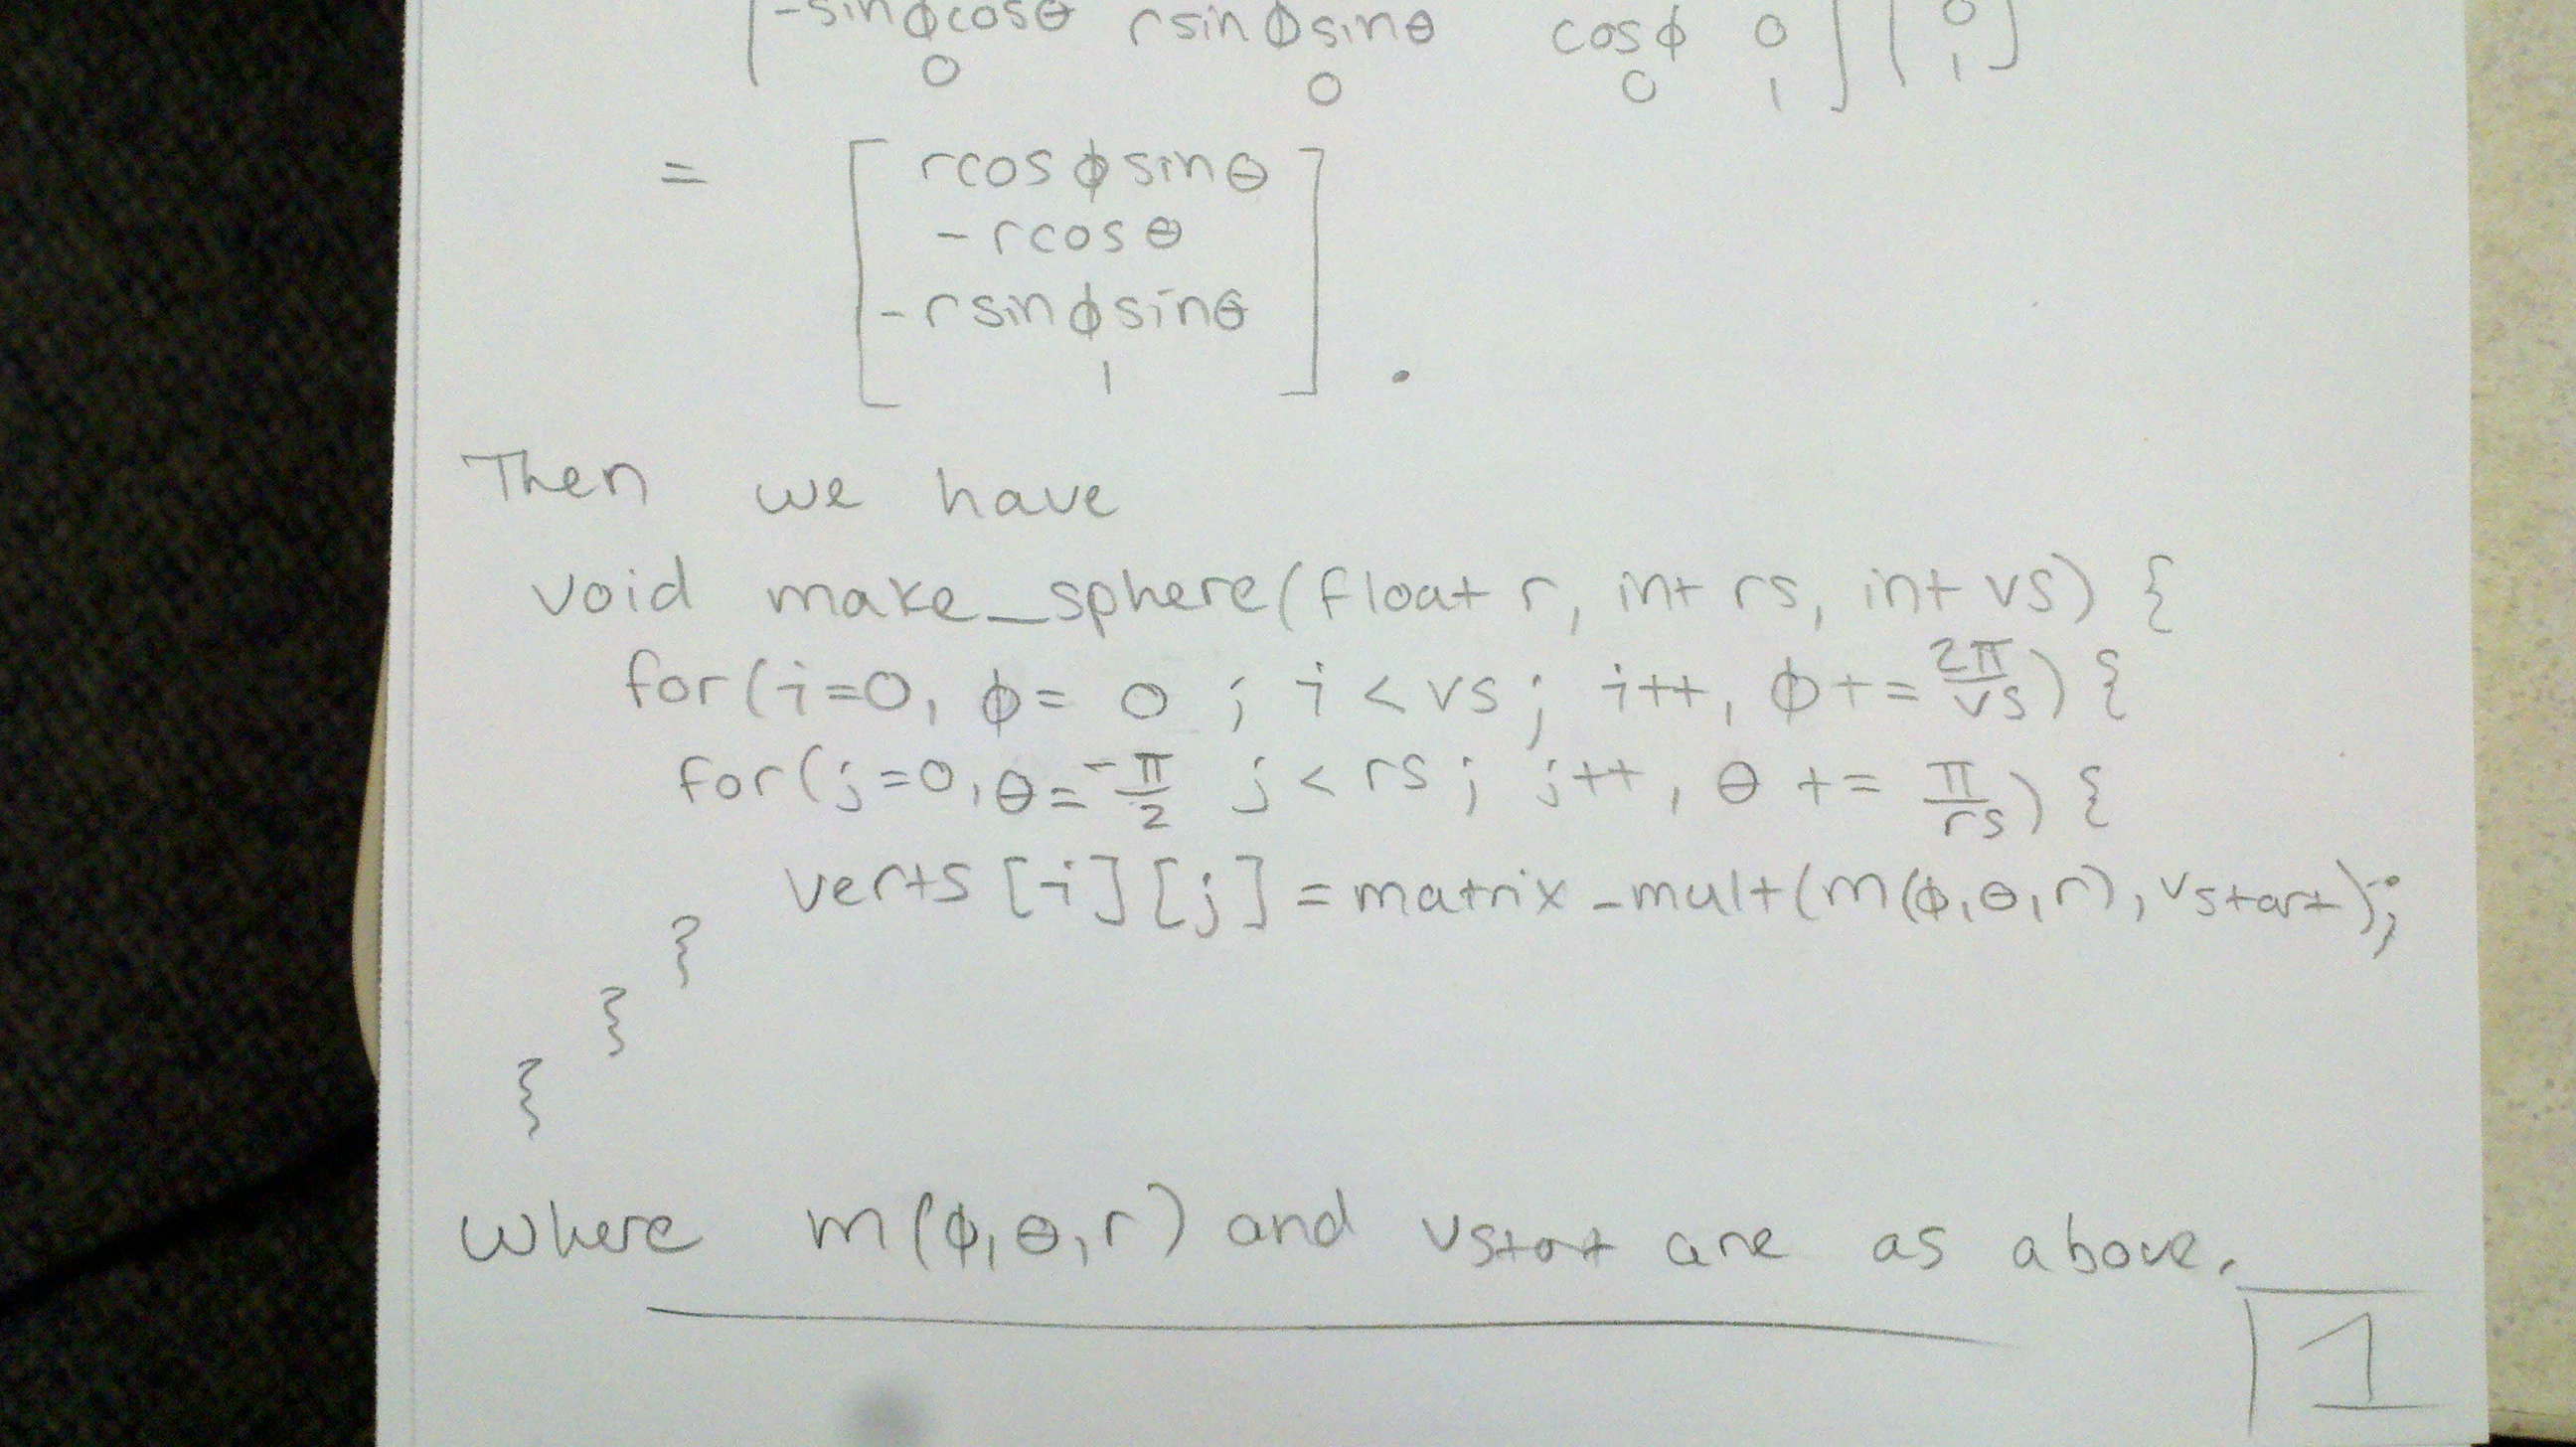 -sinϕcosθ rsinϕsinθ cosϕ 0 0
0 0 0 1 1
= [ rcosϕsinθ
-rcosθ
-rsinϕsinθ
1 ] .
Then we have
void make_sphere(float r, int rs, int vs) {
for(i=0, ϕ= 0 ; i < vs; i++, ϕ+= 2π/vs) {
for(j=0, θ= -π/2 j < rs; j++, θ += π/rs) {
verts[i][j] = matrix_mult(m(ϕ,θ,r), vstart);
}
}
}
where m(ϕ,θ,r) and vstart are as above.
1